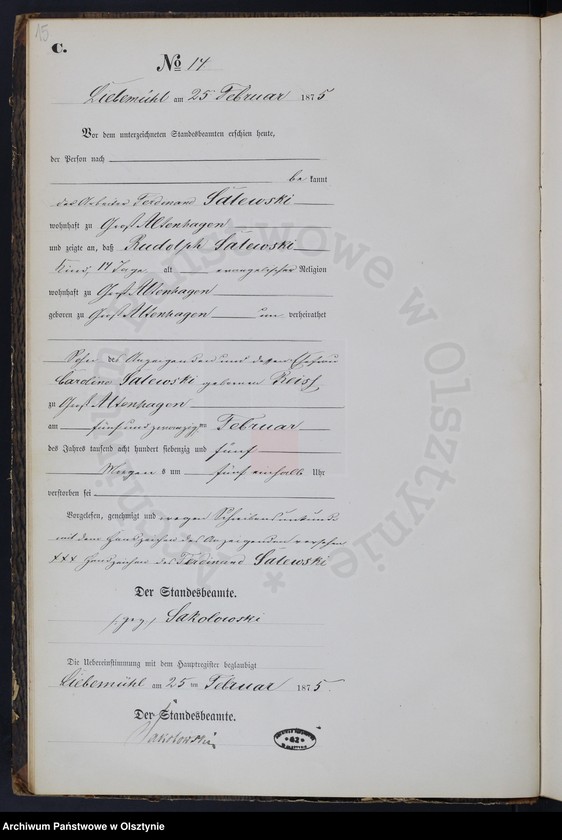 15
C.
No 14
Liebemühl am 25 Februar 1875
Vor dem unterzeichneten Standesbeamten erschien heute,
der Person nach
be kannt
der Arbeiter Ferdinand Salewski
wohnhaft zu Groß Altenhagen
und zeigte an, daß Rudolph Salewski
Kind, 14 Tage alt evangelischer Religion
wohnhaft zu Groß Altenhagen
geboren zu Groß Altenhagen un verheirathet
Sohn des Anzeigenden und dessen Ehefrau
Caroline Salewski geborenen
zu Groß Altenhagen
am fünfundzwanzigten Februar
des Jahres tausend acht hundert siebenzig und fünf
Morgens um fünf einhalb Uhr
verstorben sei
Vorgelesen, genehmigt und wegen Schreibensunkunde
mit dem Handzeichen des Anzeigenden versehen
+++ Handzeichen des Ferdinand Salewski
Der Standesbeamte.
(gez) Sakolowski
Die Uebereinstimmung mit dem Hauptregister beglaubigt
Liebemühl am 25 ten Februar 1875.
Der Standesbeamte.
Sakolowski
Archiwum Państwowe w Olsztynie *
Archiwum Państwowe w Olsztynie